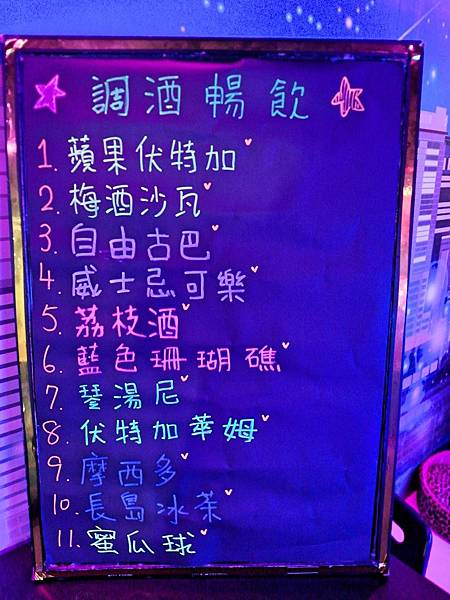 調酒暢飲
1. 蘋果伏特加
2. 梅酒沙瓦
3. 自由古巴
4. 威士忌可樂
5. 荔枝酒
6. 藍色珊瑚礁
7. 琴湯尼
8. 伏特加萊姆
9. 摩西多
10. 長島冰茶
11. 蜜瓜球